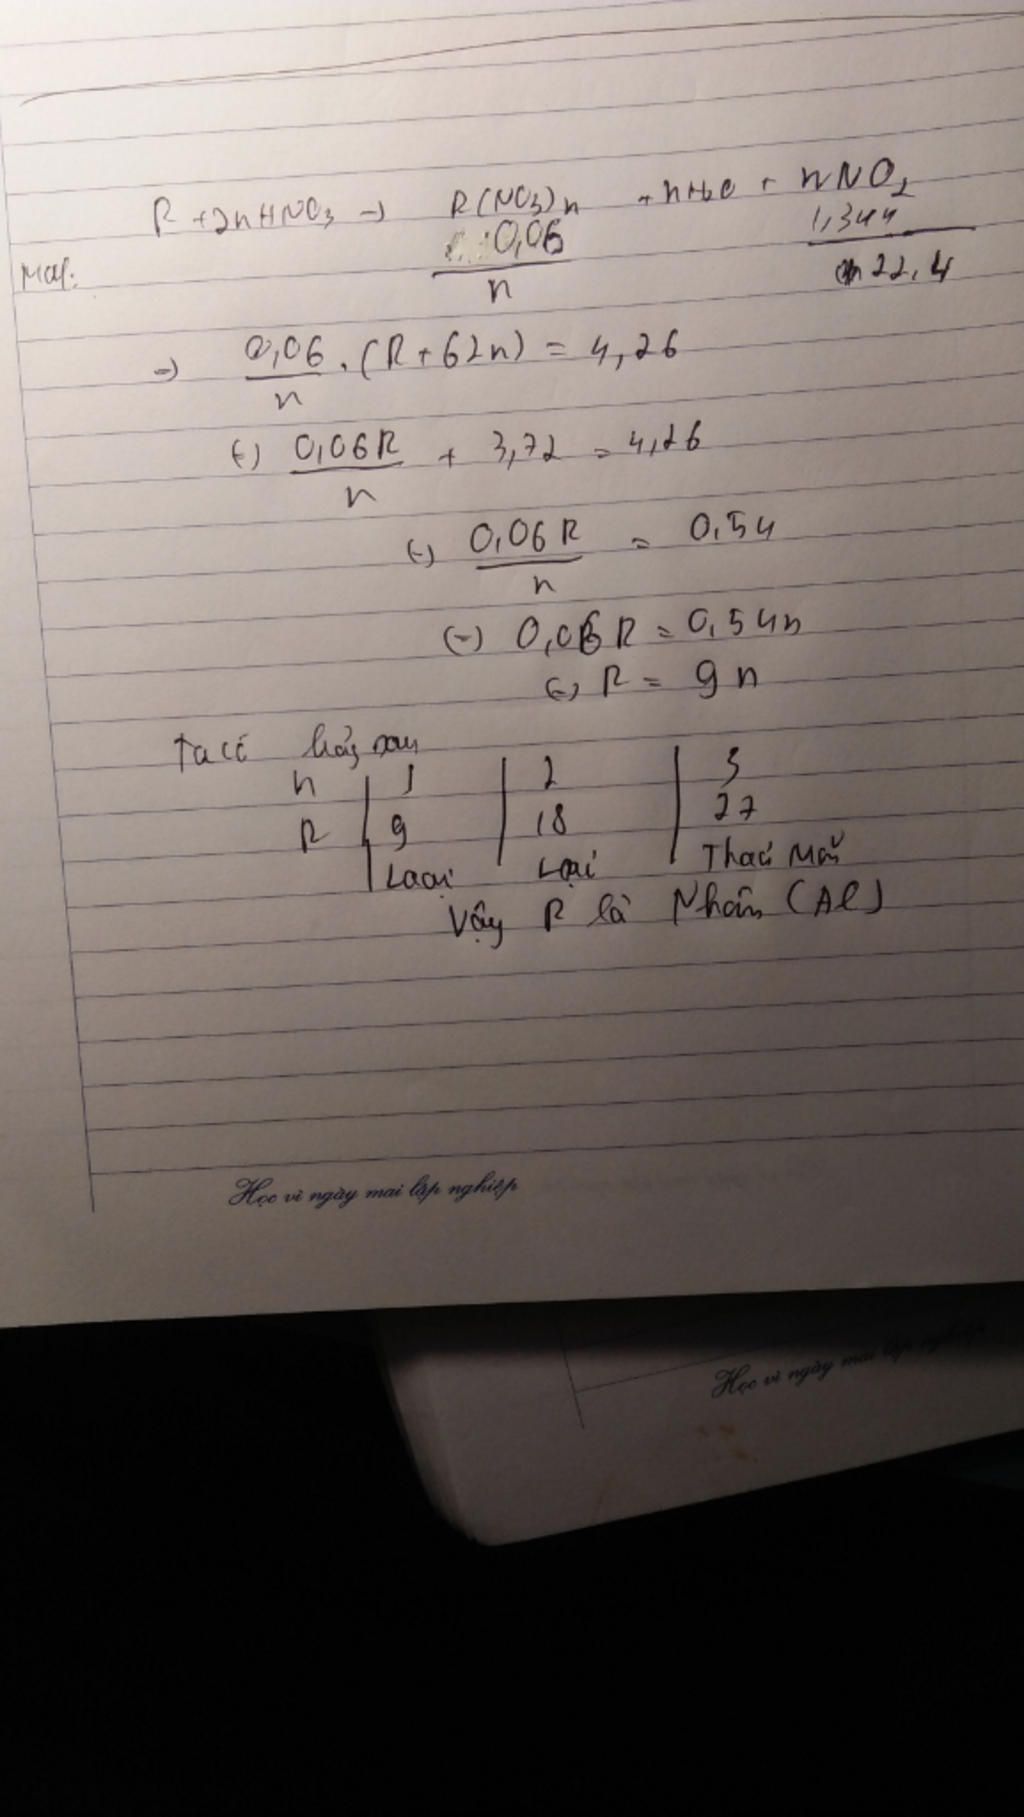 R + 2nHNO3 → R(NO3)n + nH2O + nNO2
Mol: 0,06/n 1,344/22,4
→ 0,06/n . (R + 62n) = 4,26
(-) 0,06R/n + 3,72 = 4,26
(-) 0,06R/n = 0,54
(-) 0,06R = 0,54n
(-) R = 9n
Ta có bảng sau
n | 1 | 2 | 3
R | 9 | 18 | 27
| Loại | Loại | Thoả Mãn
Vậy R là Nhôm (Al)
Học vì ngày mai lập nghiệp
Học vì ngày mai lập nghiệp